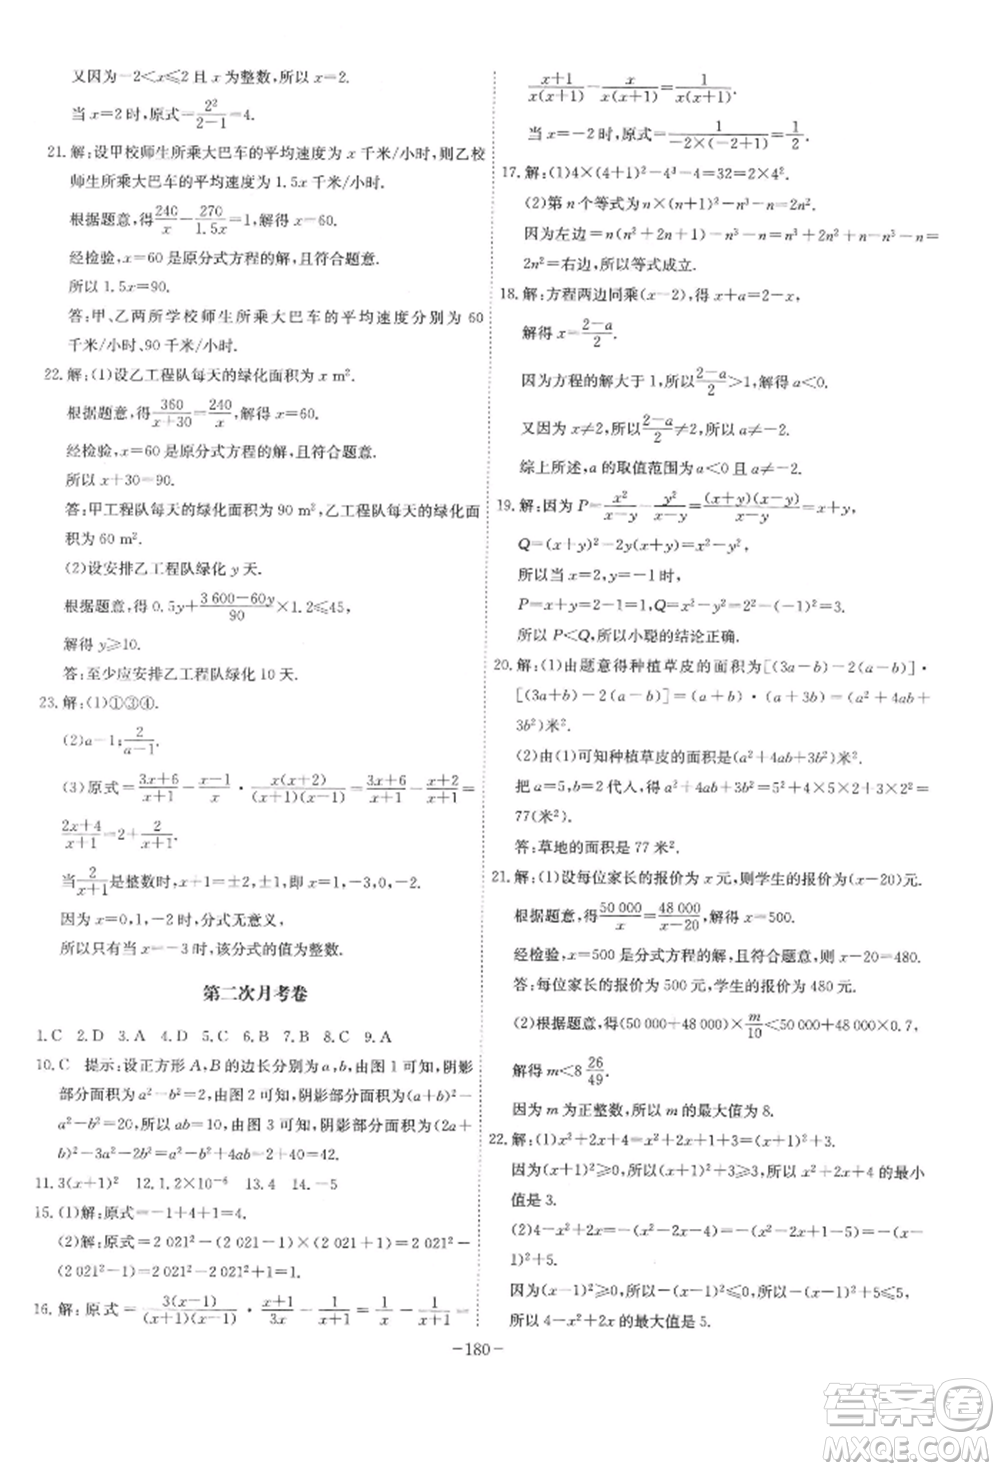 又因为-2<x≤2 且 x 为整数,所以 x=2.
当 x=2 时,原式=2²/(2-1)=4.
21.解:设甲校师生所乘大巴车的平均速度为 x 千米/小时,则乙校
师生所乘大巴车的平均速度为 1.5x 千米/小时.
根据题意,得240/x-270/1.5x=1,解得 x=60.
经检验,x=60 是原分式方程的解,且符合题意.
所以 1.5x=90.
答:甲、乙两所学校师生所乘大巴车的平均速度分别为 60
千米/小时、90 千米/小时.
22.解:(1)设乙工程队每天的绿化面积为 x m².
根据题意,得360/(x+30)=240/x,解得 x=60.
经检验,x=60 是原分式方程的解,且符合题意.
所以 x+30=90.
答:甲工程队每天的绿化面积为 90 m²,乙工程队每天的绿化面
积为 60 m².
(2)设安排乙工程队绿化 y 天.
根据题意,得 0.5y+(3 600-60y)/90×1.2≤45,
解得 y≥10.
答:至少应安排乙工程队绿化 10 天.
23.解:(1)①③④.
(2)a-1;2/(a-1).
(3)原式=(3x+6)/(x+1)-(x-1)/x·x(x+2)/((x+1)(x-1))=(3x+6)/(x+1)-(x+2)/(x+1)=
(2x+4)/(x+1)=2+2/(x+1).
当2/(x+1)是整数时,x+1=±1 或±2,即 x=0,-2,1,-3.
因为 x=0,1,-2 时,分式无意义,
所以只有当 x=-3 时,该分式的值为整数.
第二次月考卷
1.C 2.D 3.A 4.D 5.C 6.B 7.B 8.C 9.A
10.C 提示:设正方形 A,B 的边长分别为 a,b,由图 1 可知,阴影
部分面积 a²-b²=2,由图 2 可知,阴影部分面积为(a+b)²-
a²-b²=20,所以 ab=10,由图 3 可知,阴影部分面积为(2a+
b)²-3a²-2b²=a²-b²+4ab=42.
11.3(x+1)² 12.1.2×10⁻⁶ 13.4 14.-1
15.(1)解:原式=-1+4+1=4.
(2)解:原式=2 021²-(2 021-1)(2 021+1)=2 021²-
(2 021²-1)=2 021²-2 021²+1=1.
16.解:原式=3(x-1)/((x+1)(x-1))·(x+1)/3x-1/(x+1)=1/x-1/(x+1)=
(x+1)/(x(x+1))-x/(x(x+1))=1/(x(x+1)).
当 x=-2 时,原式=1/(-2×(-2+1))=1/2.
17.解:(1)4×(4+1)²-4³-4=32=2×4².
(2)第 n 个等式为 n×(n+1)²-n³-n=2n².
因为左边=n(n²+2n+1)-n³-n=n³+2n²+n-n³-n=
2n²=右边,所以等式成立.
18.解:方程两边同乘(x-2),得 x+a=2-x,
解得 x=(2-a)/2.
因为方程的解大于 1,所以(2-a)/2>1,解得 a<0.
又因为 x≠2,所以(2-a)/2≠2,解得 a≠-2.
综上所述,a 的取值范围为 a<0 且 a≠-2.
19.解:因为 P=x²/(x-y)-y²/(x-y)=(x+y)(x-y)/(x-y)=x+y,
Q=(x+y)²-2y(x+y)=x²-y²,
所以当 x=2,y=-1 时,
P=x+y=2-1=1,Q=x²-y²=2²-(-1)²=3,
所以 P<Q,所以小聪的结论正确.
20.解:(1)由题意得种植草皮的面积为[(3a-b)-2(a-b)]·
[(3a+b)-2(a-b)]=(a+b)(a+3b)=(a²+4ab+
3b²)(米²).
(2)由(1)可知种植草皮的面积是(a²+4ab+3b²)米².
把 a=5,b=2 代入,得 a²+4ab+3b²=5²+4×5×2+3×2²=
77(米²).
答:草地的面积是 77 米².
21.解:(1)设每位家长的报价为 x 元,则学生的报价为(x-20)元.
根据题意,得50 000/x=48 000/(x-20),解得 x=500.
经检验,x=500 是原分式方程的解,且符合题意,x-20=480.
答:每位家长的报价为 500 元,学生的报价为 480 元.
(2)根据题意,得(50 000+48 000)×m/10<50 000+48 000×0.7,
解得 m<8 26/49.
因为 m 为正整数,所以 m 的最大值为 8.
22.解:(1)x²+2x+4=x²+2x+1+3=(x+1)²+3.
因为(x+1)²≥0,所以(x+1)²+3≥3,所以 x²+2x+4 的最小
值是 3.
(2)4-x²+2x=-(x²-2x-4)=-(x²-2x+1-5)=-(x-
1)²+5.
因为(x-1)²≥0,所以-(x-1)²≤0,所以-(x-1)²+5≤5,
所以 4-x²+2x 的最大值是 5.
-180-
答案圈
MXQE.COM